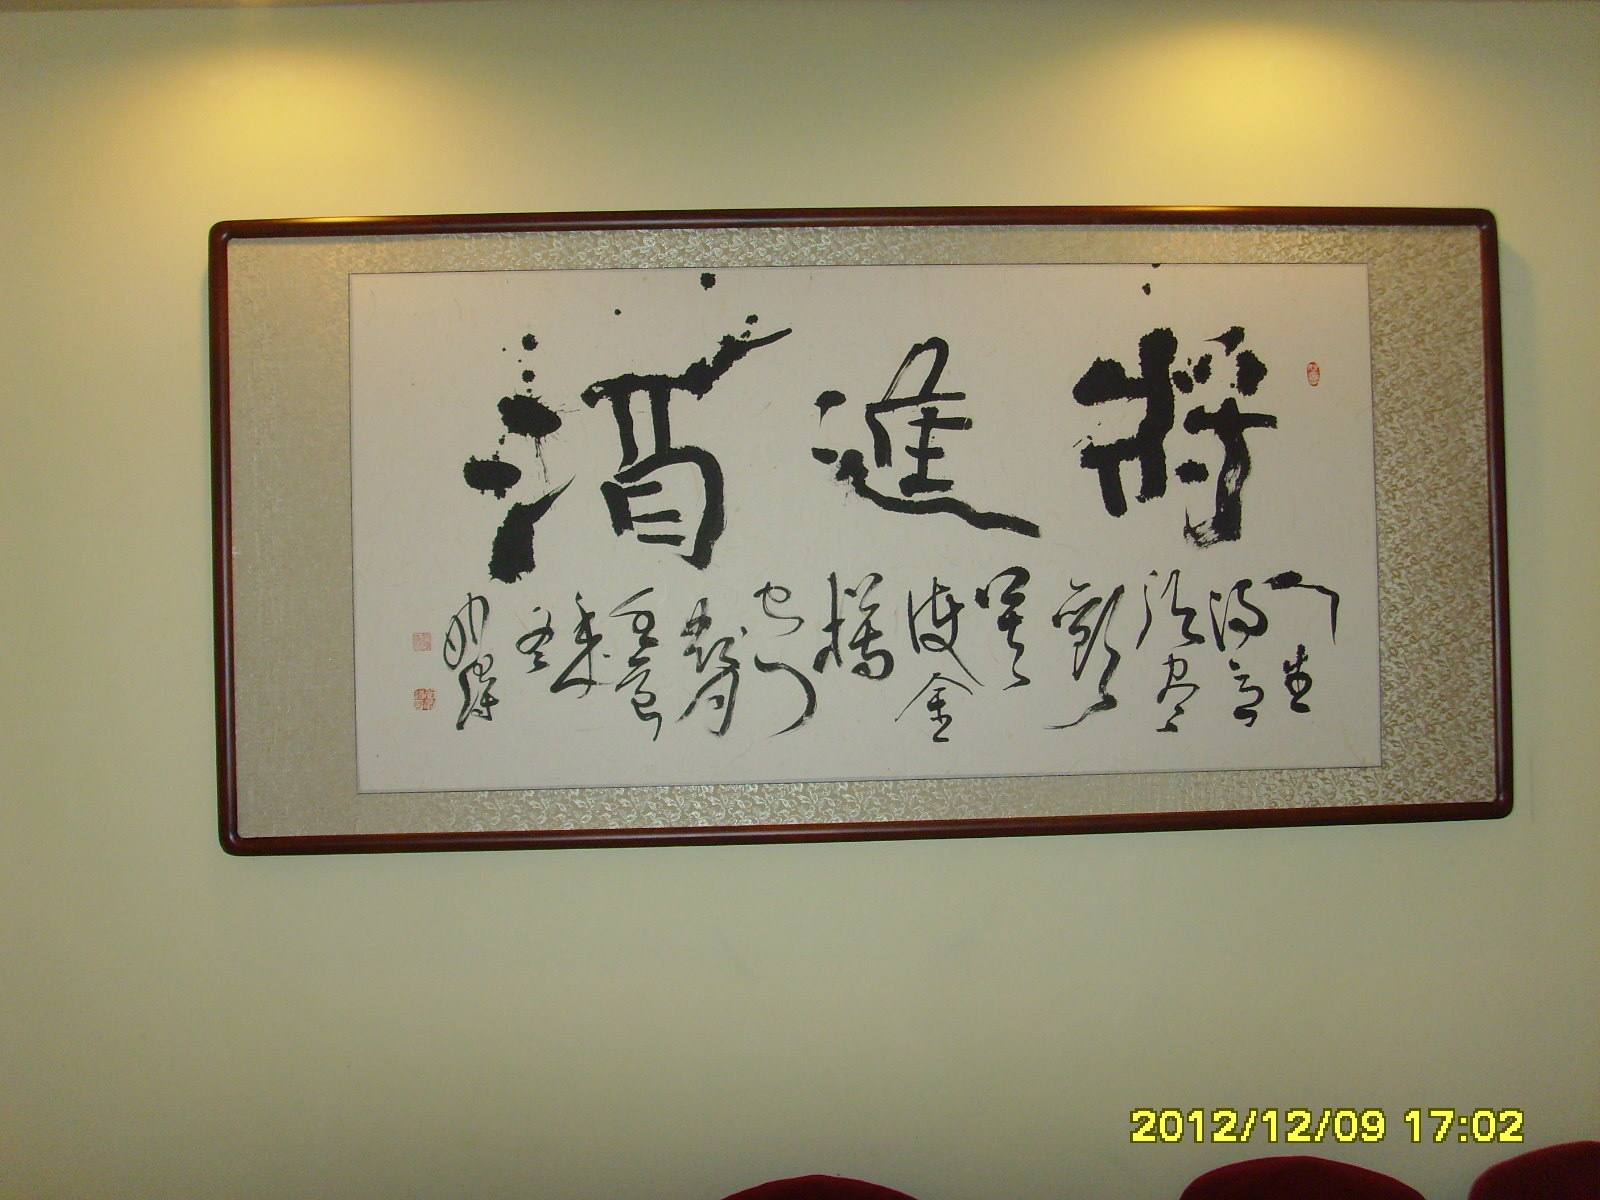 將進酒
人生
得意
須尽
歡
莫
使金
樽
空
對月
壬辰
秋
冬
2012/12/09 17:02